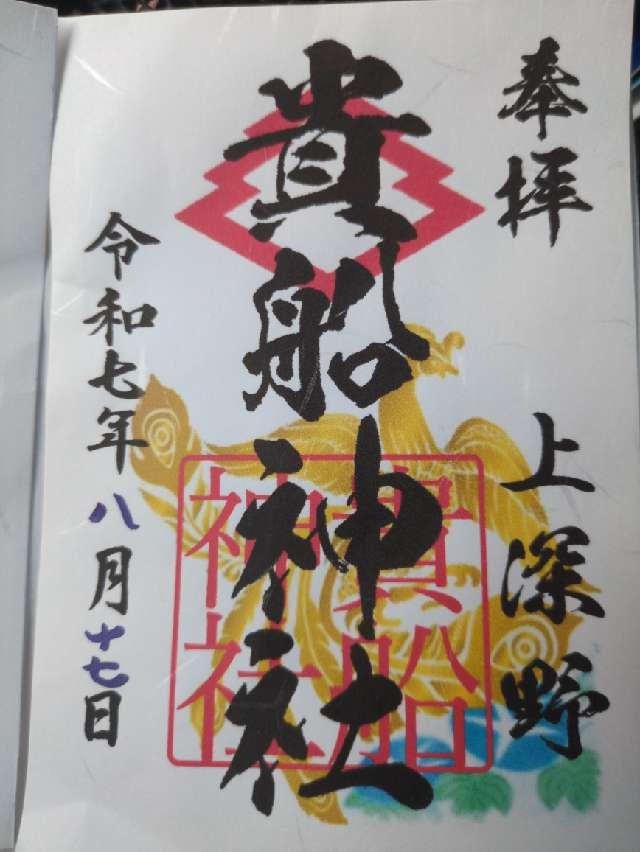 奉拝
上深野
貴船神社
貴船
神社
令和七年八月十七日